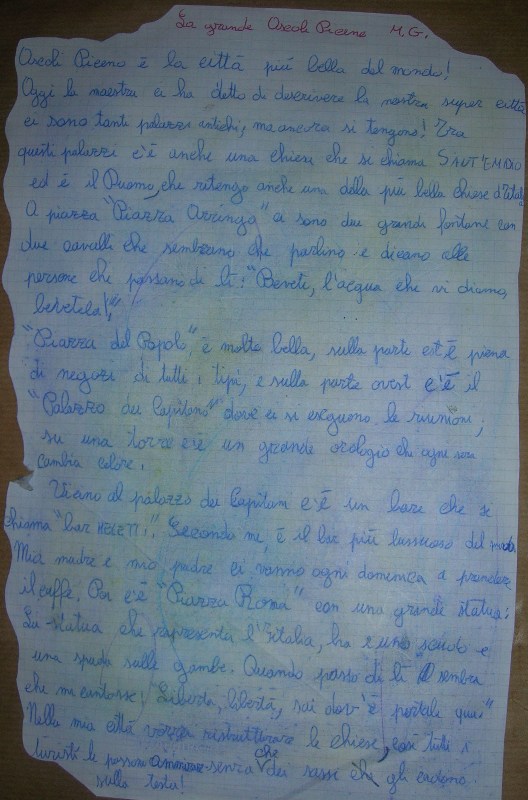 La grande Ascoli Piceno M.G.
Ascoli Piceno è la città più bella del mondo!
Oggi la maestra ci ha detto di descrivere la nostra super città
ci sono tanti palazzi antichi, ma ancora si tengono! Tra
questi palazzi c'è anche una chiesa che si chiama SANT'EMIDIO
ed è il Duomo, che ritengo anche una della più bella chiese d'Italia
A piazza "Piazza Arringo" ci sono due grandi fontane con
due cavalli che sembrano che parlino e dicano alle
persone che passano di lì: "Bevete, l'acqua che vi diamo,
bevetela!"
"Piazza del Popolo", è molto bella, sulla parte est è piena
di negozi di tutti i tipi, e sulla parte ovest c'è il
"Palazzo dei Capitano" dove ci si eseguono le riunioni,
su una torre c'è un grande orologio che ogni sera
cambia colore.
Vicino al palazzo dei Capitani c'è un bare che si
chiama "bar MELETTI". Secondo me, è il bar più lussuoso del mondo
Mia madre e mio padre ci vanno ogni domenica a prendere
il caffè. Poi c'è "Piazza Roma" con una grande statua:
La statua che rappresenta l'Italia, ha uno scudo e
una spada sulle gambe. Quando passo di lì sembra
che mi cantasse, Libertà, libertà, sai dov'è portala qui"
Nella mia città vorrei ristrutturare le chiese, così tutti i
turisti le possono ammirare senza che dei sassi gli cadono
sulla testa!